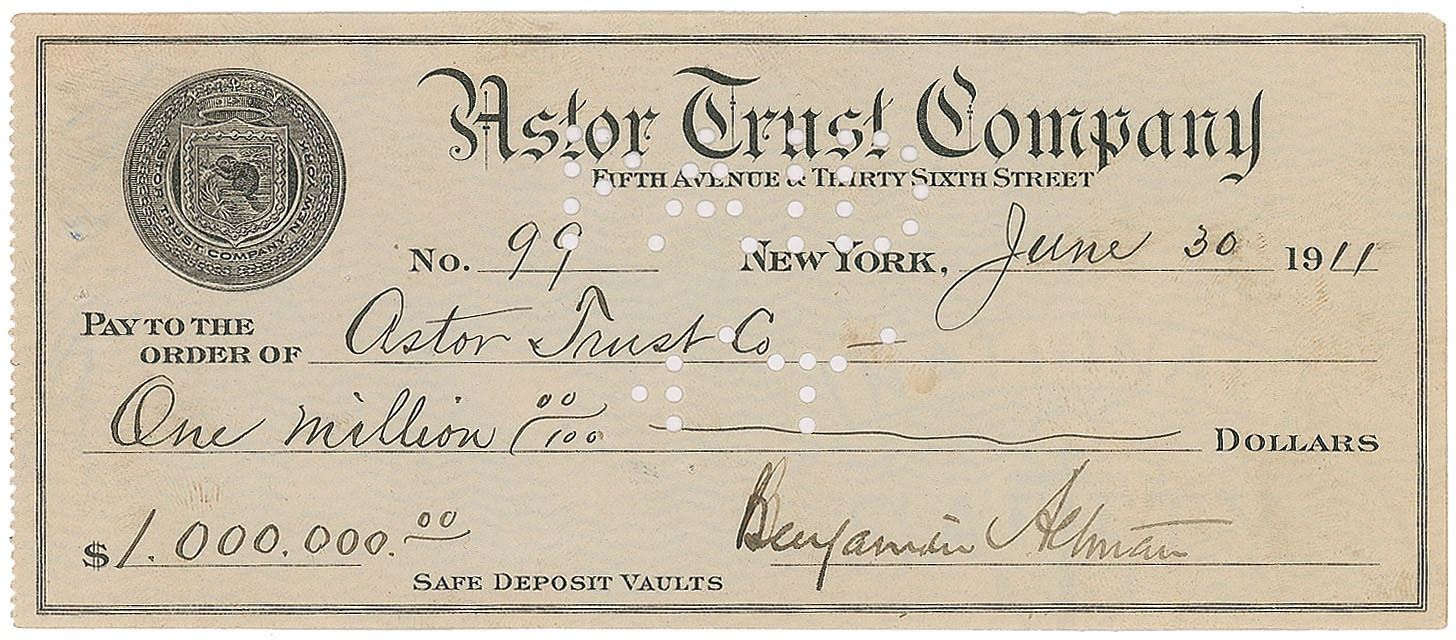 Astor Trust Company
Fifth Avenue & Thirty Sixth Street
ASTOR TRUST COMPANY NEW YORK
No. 99 New York, June 30 1911
Pay to the
order of Astor Trust Co —
One million 00/100 Dollars
$ 1.000.000.00
Benjamin Altman
Safe Deposit Vaults